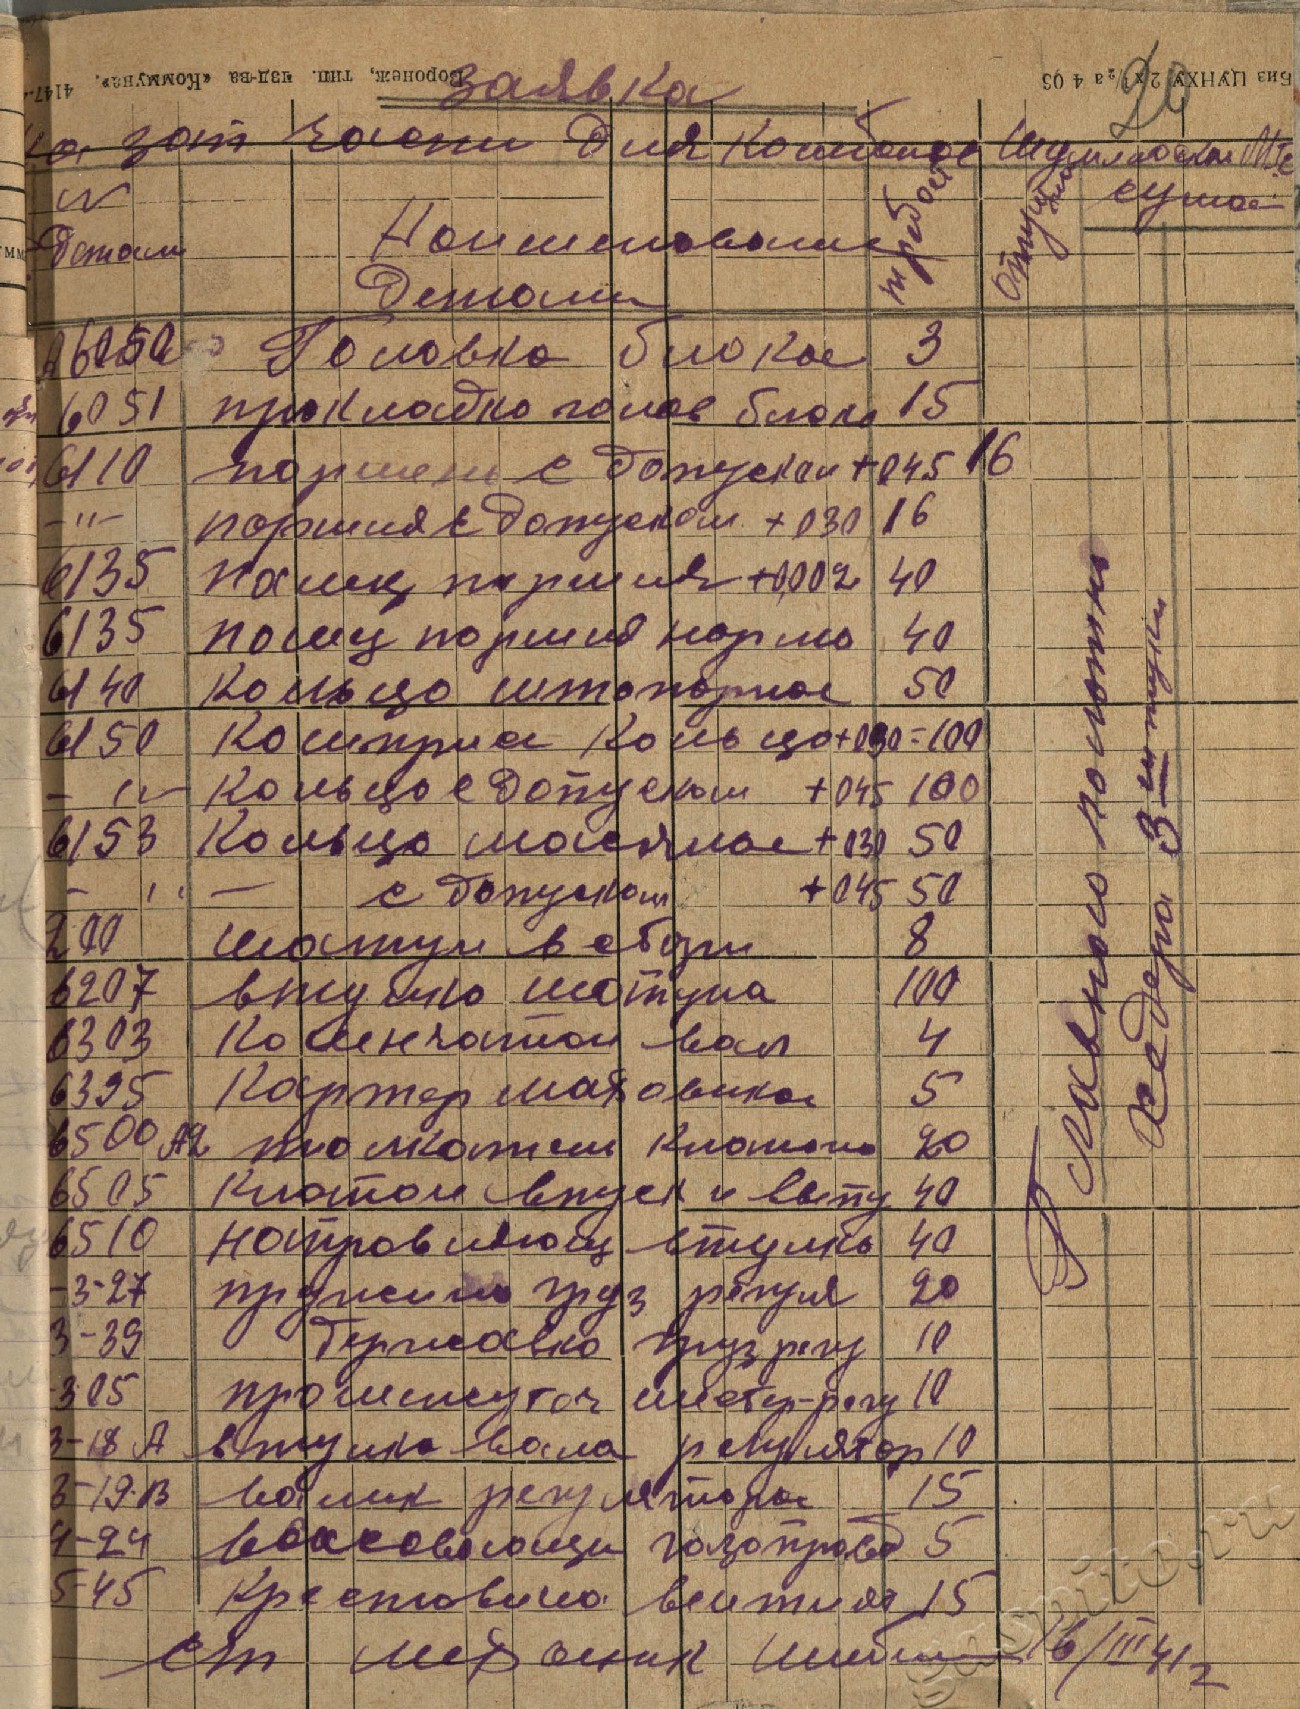 Биз ЦУНХУ 2 х 1/2 а 4 03
Воронеж, тип. изд-ва «Коммуна». 4147
20
Заявка
на зап части для комбаинов Шумилоской МТС
№ Детали
Наименования Детали
требует
отпущено
сумма
А6050 Головка блока 3
6051 прокладка голов блока 15
6110 поршень с допуском +045 16
-"- поршня с допуском +030 16
6135 палец поршня +0,002 40
6135 палец поршня норма 40
6140 Кольцо штопорное 50
6150 Компрес Кольцо +030 = 100
- " - Кольцо с допуском +045 100
6153 Кольцо масляное +030 50
- " - с допуском +045 50
200 шатун в сборе 8
6207 втулка шатуна 100
6303 Коленчатой вал 4
6395 Картер маховика 5
6500 А2 толкатели клапана 20
6505 Клапан впуск и выпу 40
6510 направляющ втулка 40
-3-27 пружина груз регуля 20
3-39 Державка груз регу 10
-305 промежуточ шестер-регу 10
3-18 А втулка вала регулятор 10
3-19-В валик регулятора 15
4-24 всасовающи газопровод 5
5-45 Крестовина вентиля 15
ст механик 16/III 412
Главного полотна
хедера 3 штуки
gasnito.ru